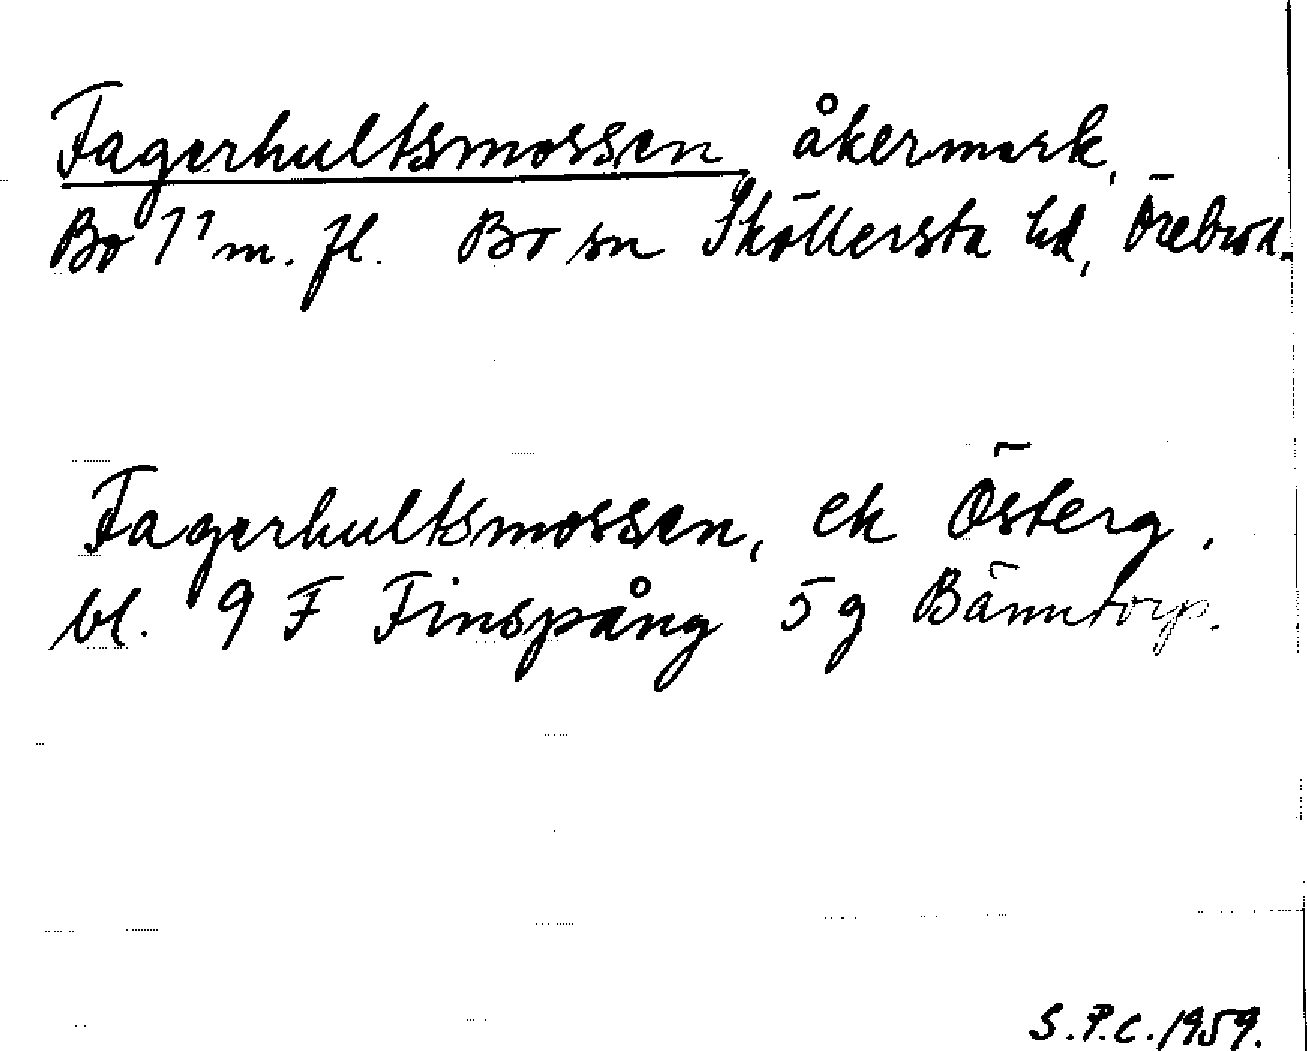 Fagerhultsmossen åkermark,
Bo 1¹ m. fl. Bo sn Sköllersta hd, Örebro l.
Fagerhultsmossen, ek Österg.,
bl. 9 F Finspång 5 g Bänntorp.
S.P.C. 1959.